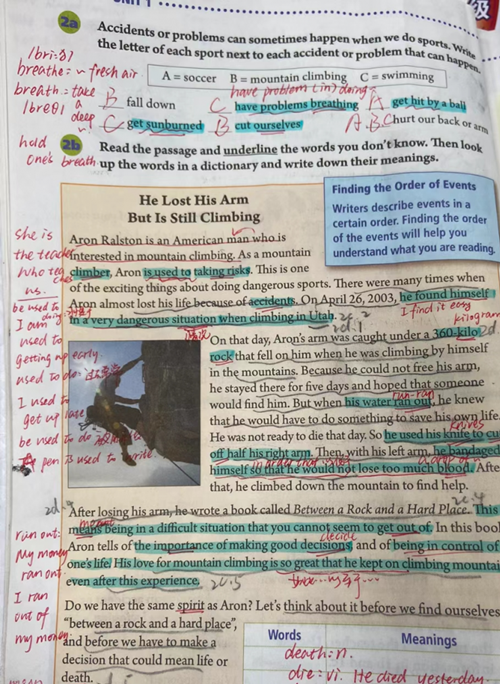 UNIT 1
级
2a Accidents or problems can sometimes happen when we do sports. Write
the letter of each sport next to each accident or problem that can happen.
A = soccer B = mountain climbing C = swimming
have problem (in) doing
B fall down C have problems breathing A get hit by a ball
C get sunburned B cut ourselves A.B.C hurt our back or arm
2b Read the passage and underline the words you don't know. Then look
up the words in a dictionary and write down their meanings.
/bri:ð/
breathe: v fresh air
breath = take
/breθ/ a
deep
hold
one's breath
He Lost His Arm
But Is Still Climbing
Finding the Order of Events
Writers describe events in a
certain order. Finding the order
of the events will help you
understand what you are reading.
Aron Ralston is an American man who is
interested in mountain climbing. As a mountain
climber, Aron is used to taking risks. This is one
of the exciting things about doing dangerous sports. There were many times when
Aron almost lost his life because of accidents. On April 26, 2003, he found himself
in a very dangerous situation when climbing in Utah.
2c.2
I find it easy
2d.1
kilogram
On that day, Aron's arm was caught under a 360-kilo
2d
rock that fell on him when he was climbing by himself
in the mountains. Because he could not free his arm,
he stayed there for five days and hoped that someone
would find him. But when his water ran out, he knew
run-ran
that he would have to do something to save his own life.
knives
He was not ready to die that day. So he used his knife to cut
off half his right arm. Then, with his left arm, he bandaged
in order that
himself so that he would not lose too much blood. After
that, he climbed down the mountain to find help.
she is
the teacher
who
us.
be used to
doing
I am
used to
getting up early.
used to do:
I used to
get up late
be used to do
pen is used to write.
2d.4
2c.4
After losing his arm, he wrote a book called Between a Rock and a Hard Place. This
means being in a difficult situation that you cannot seem to get out of. In this book
decide
Aron tells of the importance of making good decisions, and of being in control of
one's life. His love for mountain climbing is so great that he kept on climbing mountai
even after this experience.
2c.5
run out:
My money
ran out
I ran
out of
my money
Do we have the same spirit as Aron? Let's think about it before we find ourselves
"between a rock and a hard place",
and before we have to make a
decision that could mean life or
death.
Words Meanings
death: n.
die: vi. He died yesterday.